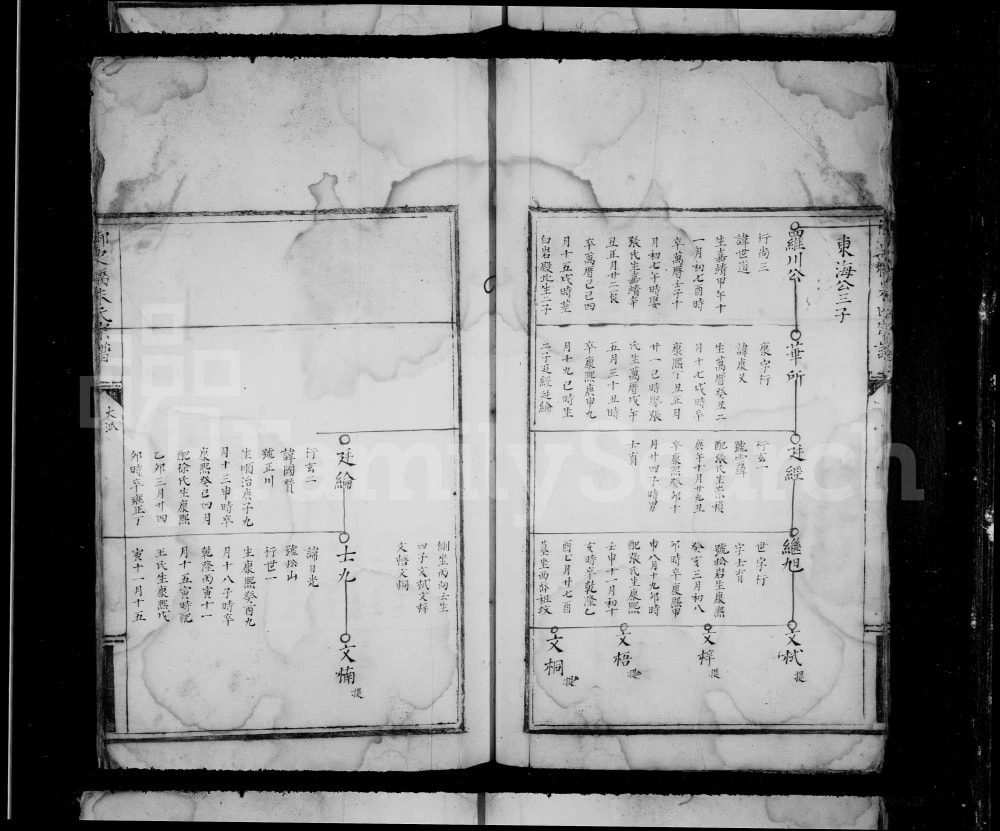 東海公三子
羅川公
行尚三
諱世道
生嘉靖甲午十
一月初七酉時
卒萬曆壬子十
月初七午時娶
張氏生嘉靖辛
丑正月廿二長
卒萬曆己巳四
月十五戌時塟
白岩殿北生二子
華所
康字行
諱康义
生萬曆癸丑二
月十七戌時卒
康熙丁丑正月
廿一巳時娶張
氏生萬曆戊午
五月三十丑時
卒康熙庚申九
月十九巳時生
二子廷經廷綸
廷經
行玄一
配張氏生崇禎
庚午十月廿九丑
卒康熙癸卯十
月廿四子時男
士有
繼旭
世字行
字士有
號松岩生康熙
癸亥三月初八
卯時卒康熙甲
申八月十九卯時
配張氏生康熙
壬申十一月初十
亥時卒乾隆乙
酉七月廿七酉
墓坐西
文栻 提
文梓 提
文梧 提
文桐 提
側坐丙向壬生
四子文栻文梓
文梧文桐
廷綸
行玄二
諱國賢
號正川
生順治庚子九
月十三申時卒
康熙癸巳四月
配徐氏生康熙
乙卯三月廿四
卯時卒雍正丁
士九
諱日光
號松山
行世一
生康熙癸酉九
月十八子時卒
乾隆丙寅十一
月十五寅時配
王氏生康熙戊
寅十一月十五
文楠 提
大派
FamilySearch